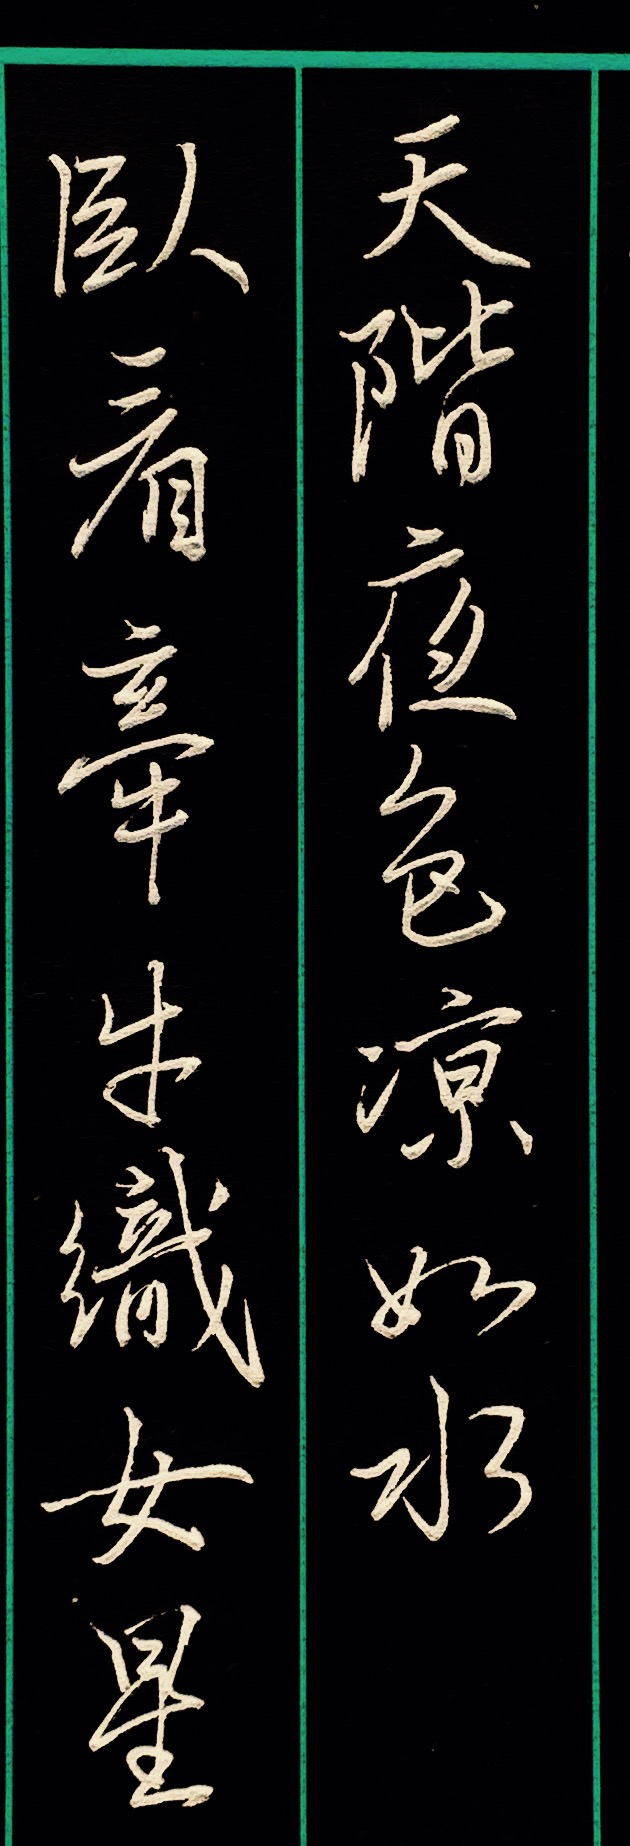 天階夜色涼如水
臥看牽牛織女星